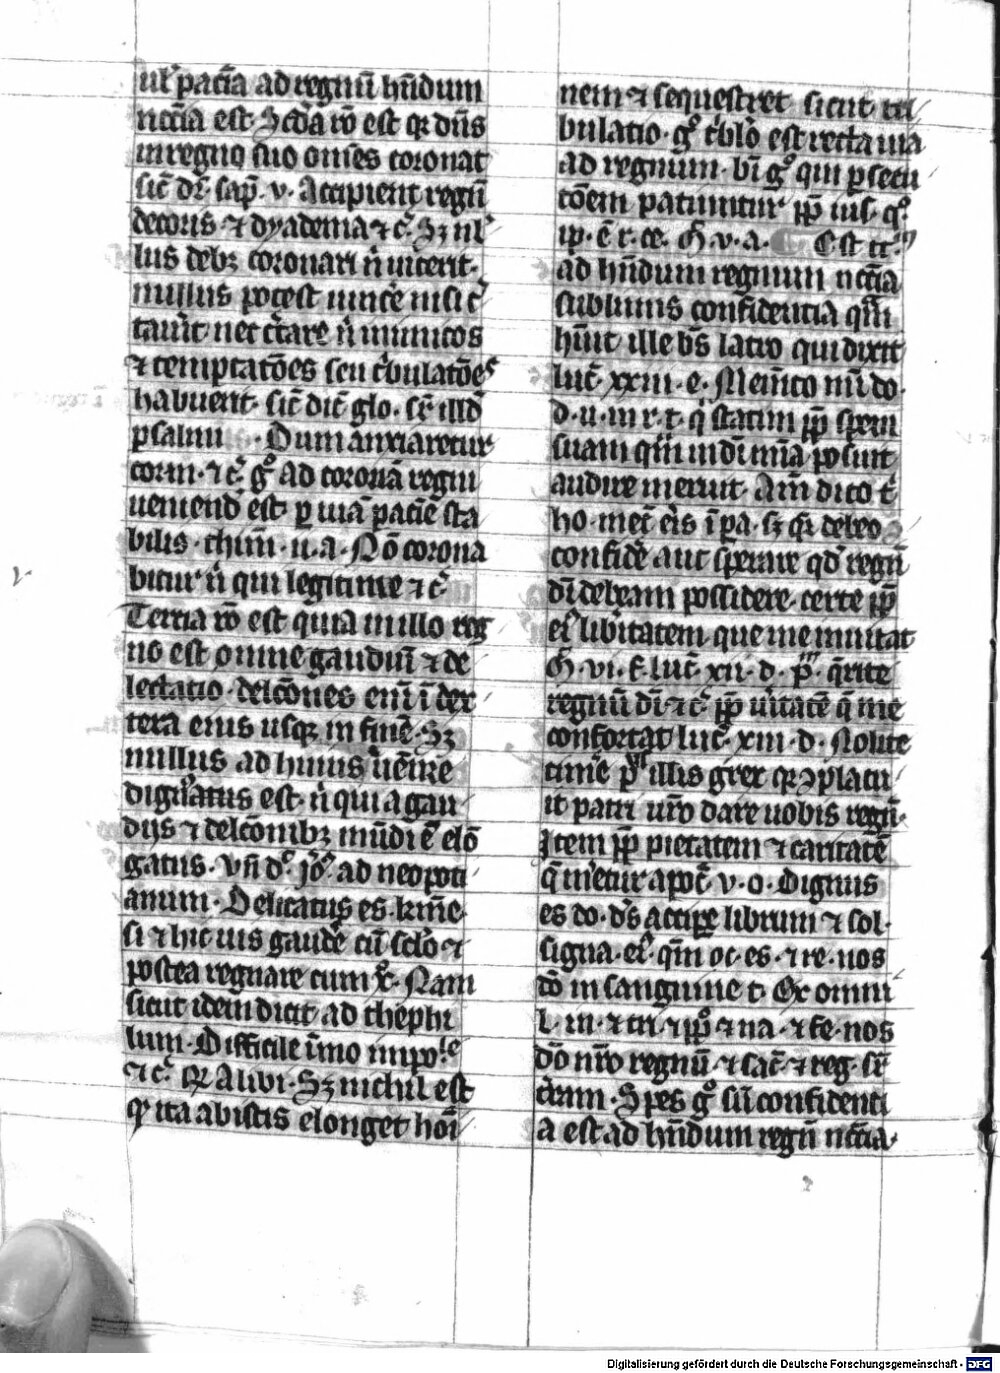 ul' paciā ad regnū hn̄dum
nccīa est. Scd̄a ro̅ est qr dn̄s
in regno suo om̄es coronat
sic̄ dr̄. sap̄. v. Accipient regnū
decoris. ⁊ dyadema ⁊ c̄. Sꝫ nl'
lus debꝫ coronari n̄ uic̄erit.
nullus potest uinc̄e nisi c̄
tau̅it. nec c̄tare n̄ inimicos
⁊ temptatōes seu t̄bulatōes
habuerit. sic̄ dic̄ glo. sr̄ illd̄
psalmi. Dum anxiaretur
cor m. ⁊ c̄. gͦ ad coronā regni
ueniend̄ est. p uiā paciē sta
bilis. thim̄. ii. a. Nō corona
bitur n̄ qui legitime ⁊ c̄
Tercia ro̅ est quia in illo reg
no est omne gaudiū ⁊ de
lectatio. delcōnes em̄ ī dex
tera eius usqꝫ in finē. Sꝫ
nullus ad huius ueīre
dignatus est. n̄ qui a gau
dijs ⁊ delcōnibꝫ mūdi ē elō
gatus. Vn̄ dͦ. Jrͦ. ad neopoti
anum. Delicatus es. kīme
si ⁊ hic uis gaudē cū sclo ⁊
postea regnare cum xͦ. Nam
sicut idem dicit ad thephi
lum. Difficile īmo inpoͥle
⁊ c̄. qr Alibi. Sꝫ nichil est
qͥ ita ab istis elonget hoī
nem ⁊ sequestret sicut tri
bulatio. gͦ t̄blo̅ est recta uia
ad regnum. bī gͦ qui psecu
cōem patiuntur pp̄ ius. qͦ.
ip. ē r. ce. M̄. v. a. Est
ad hn̄dum regnum nccīa
sublimis confidentia qm̄
hūit ille bs̄ latro qui dixit
luc̄. xxiii. e. Mem̄to mī do.
d. u. in r. t. qͥ statim pp̄ spem
suam qm̄ in dī mīa posuit
audire meruit. Am̄ dico t̄
ho. mec̄ eis ī pa. sꝫ qr debeo
confidē aut sperare qd̄ regnū
dī debeam possidere. certe pp̄
eiͦ libītatem que me inuitat
M̄. vi. f. luc̄. xii. d. pͫ. q̄rite
regnū dī ⁊ c̄. pp̄ uītatē q̄ me
confortat luc̄. xiii. d. Nolite
timē pͫ illis grex qr ꝯplacu
it patri uro̅ dare uobis regnū.
Item pp̄ pietatem ⁊ caritatē
q̄ inetur apoc̄. v. o. Dignus
es do. ds̄ accipe librum ⁊ sol.
signa. eiͦ. qm̄ oc. es. ⁊ re. nos
dō in sanguine t. Ex omni
l. in. ⁊ tri. ⁊ ppͦ ⁊ na. ⁊ fe. nos
dō nro̅ regnū. ⁊ sac̄. ⁊ reg. sr̄
t̄ram. Spes gͦ sū confidenti
a est ad hn̄dum regnū nccīa.
Digitalisierung gefördert durch die Deutsche Forschungsgemeinschaft - DFG